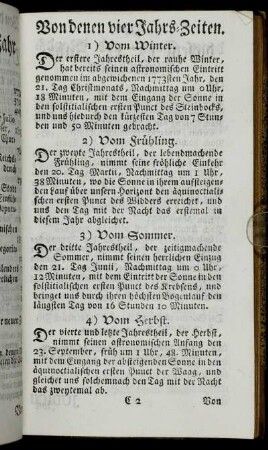 Von denen vier Jahrs-Zeiten.
1) Vom Winter.
Der erstere Jahrestheil, der rauhe Winter,
hat bereits seinen astronomischen Eintritt
genommen im abgewichenen 1773sten Jahr, den
21. Tag Christmonats, Nachmittag um 0 Uhr,
38 Minuten, mit dem Eingang der Sonne in
den solstitialischen ersten Punct des Steinbocks,
und uns hiedurch den kürzesten Tag von 7 Stun-
den und 50 Minuten gebracht.
2) Vom Frühling.
Der zweyte Jahrestheil, der lebendmachende
Frühling, nimmt seine fröhliche Einkehr
den 20. Tag Martii, Nachmittag um 1 Uhr,
58 Minuten, wo die Sonne in ihrem aufsteigen-
den Lauf über unsern Horizont den äquinoctiali-
schen ersten Punct des Widders erreichet, und
uns den Tag mit der Nacht das erstemal in
diesem Jahr abgleichet.
3) Vom Sommer.
Der dritte Jahrestheil, der zeitigmachende
Sommer, nimmt seinen herrlichen Einzug
den 21. Tag Junii, Nachmittag um 0 Uhr,
12 Minuten, mit dem Eintritt der Sonne in den
solstitialischen ersten Punct des Krebsens, und
bringet uns durch ihren höchsten Bogenlauf den
längsten Tag von 16 Stunden 10 Minuten.
4) Vom Herbst.
Der vierte und letzte Jahrestheil, der Herbst,
nimmt seinen astronomischen Anfang den
23. September, früh um 1 Uhr, 48. Minuten,
mit dem Eingang der absteigenden Sonne in den
äquinoctialischen ersten Punct der Waag, und
gleichet uns solchemnach den Tag mit der Nacht
das zweytemal ab.
C 2 Von